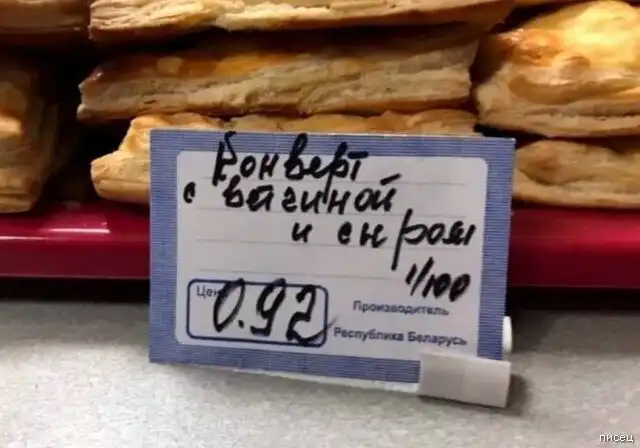 Конверт
с вагиной
и сыром
1/100
Цена
0.92
Производитель
Республика Беларусь
писец